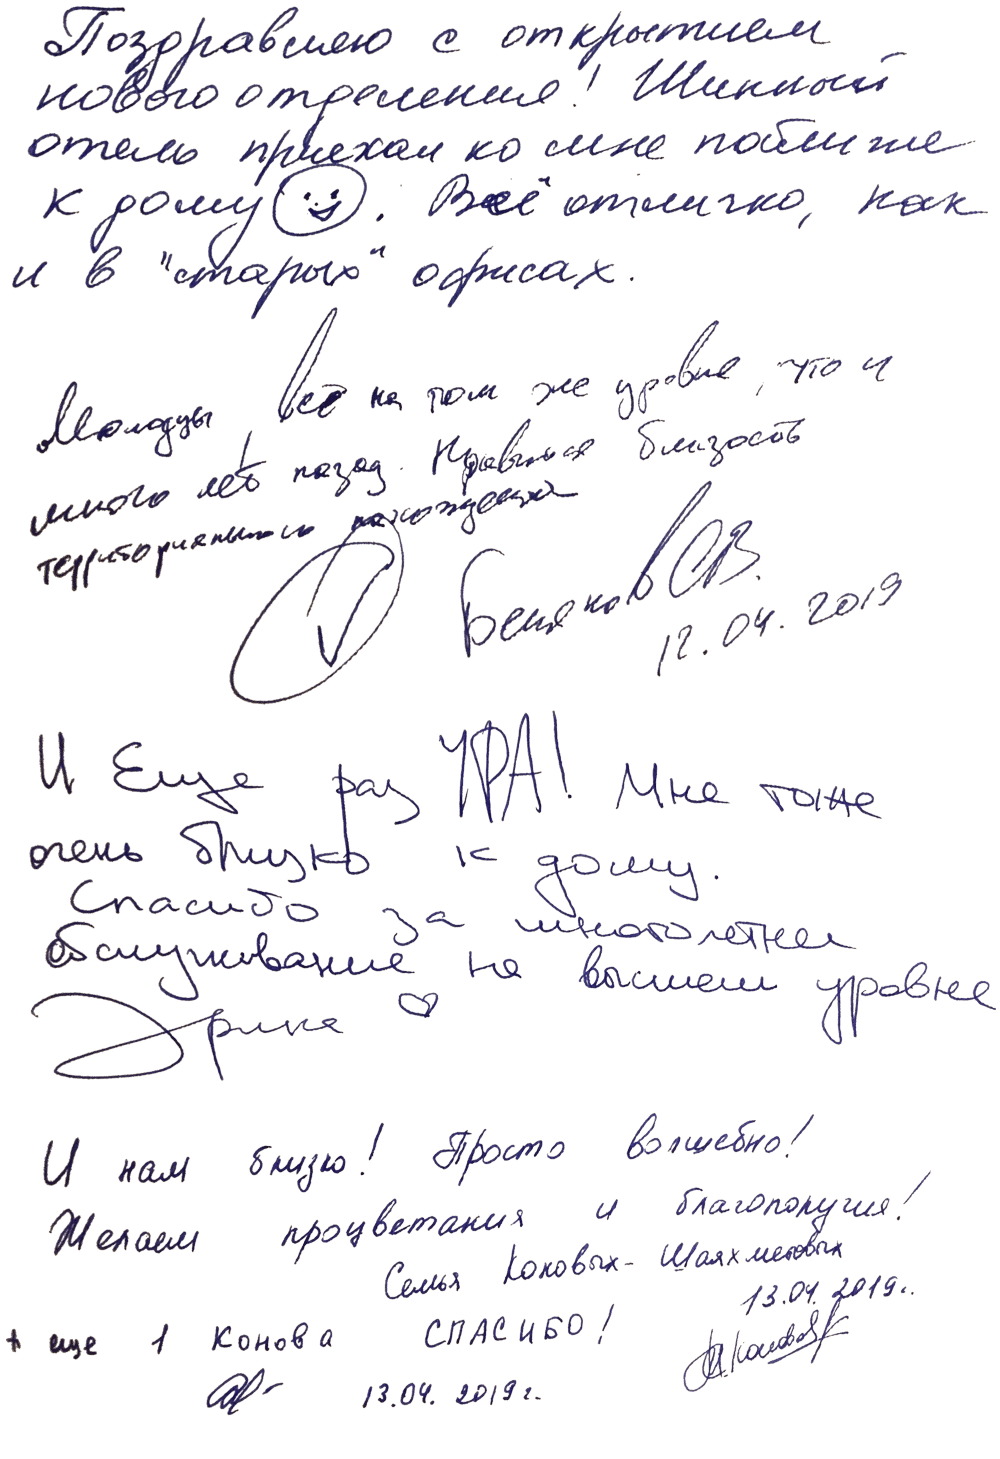 Поздравляю с открытием
нового отделения! Шинный
отель приехал ко мне поближе
к дому. Всё отлично, как
и в "старых" офисах.
Молодцы, всё на том же уровне, что и
много лет назад. Нравится близость
территориального нахождения
С.В.
12.04.2019
И Еще раз УРА! Мне тоже
очень близко к дому.
Спасибо за многолетнее
обслуживание на высшем уровне
Эрика
И нам близко! Просто волшебно!
Желаем процветания и благополучия!
Семья Коновых-Шаяхметовых
13.04.2019г.
+ еще 1 Конова СПАСИБО!
13.04.2019г.